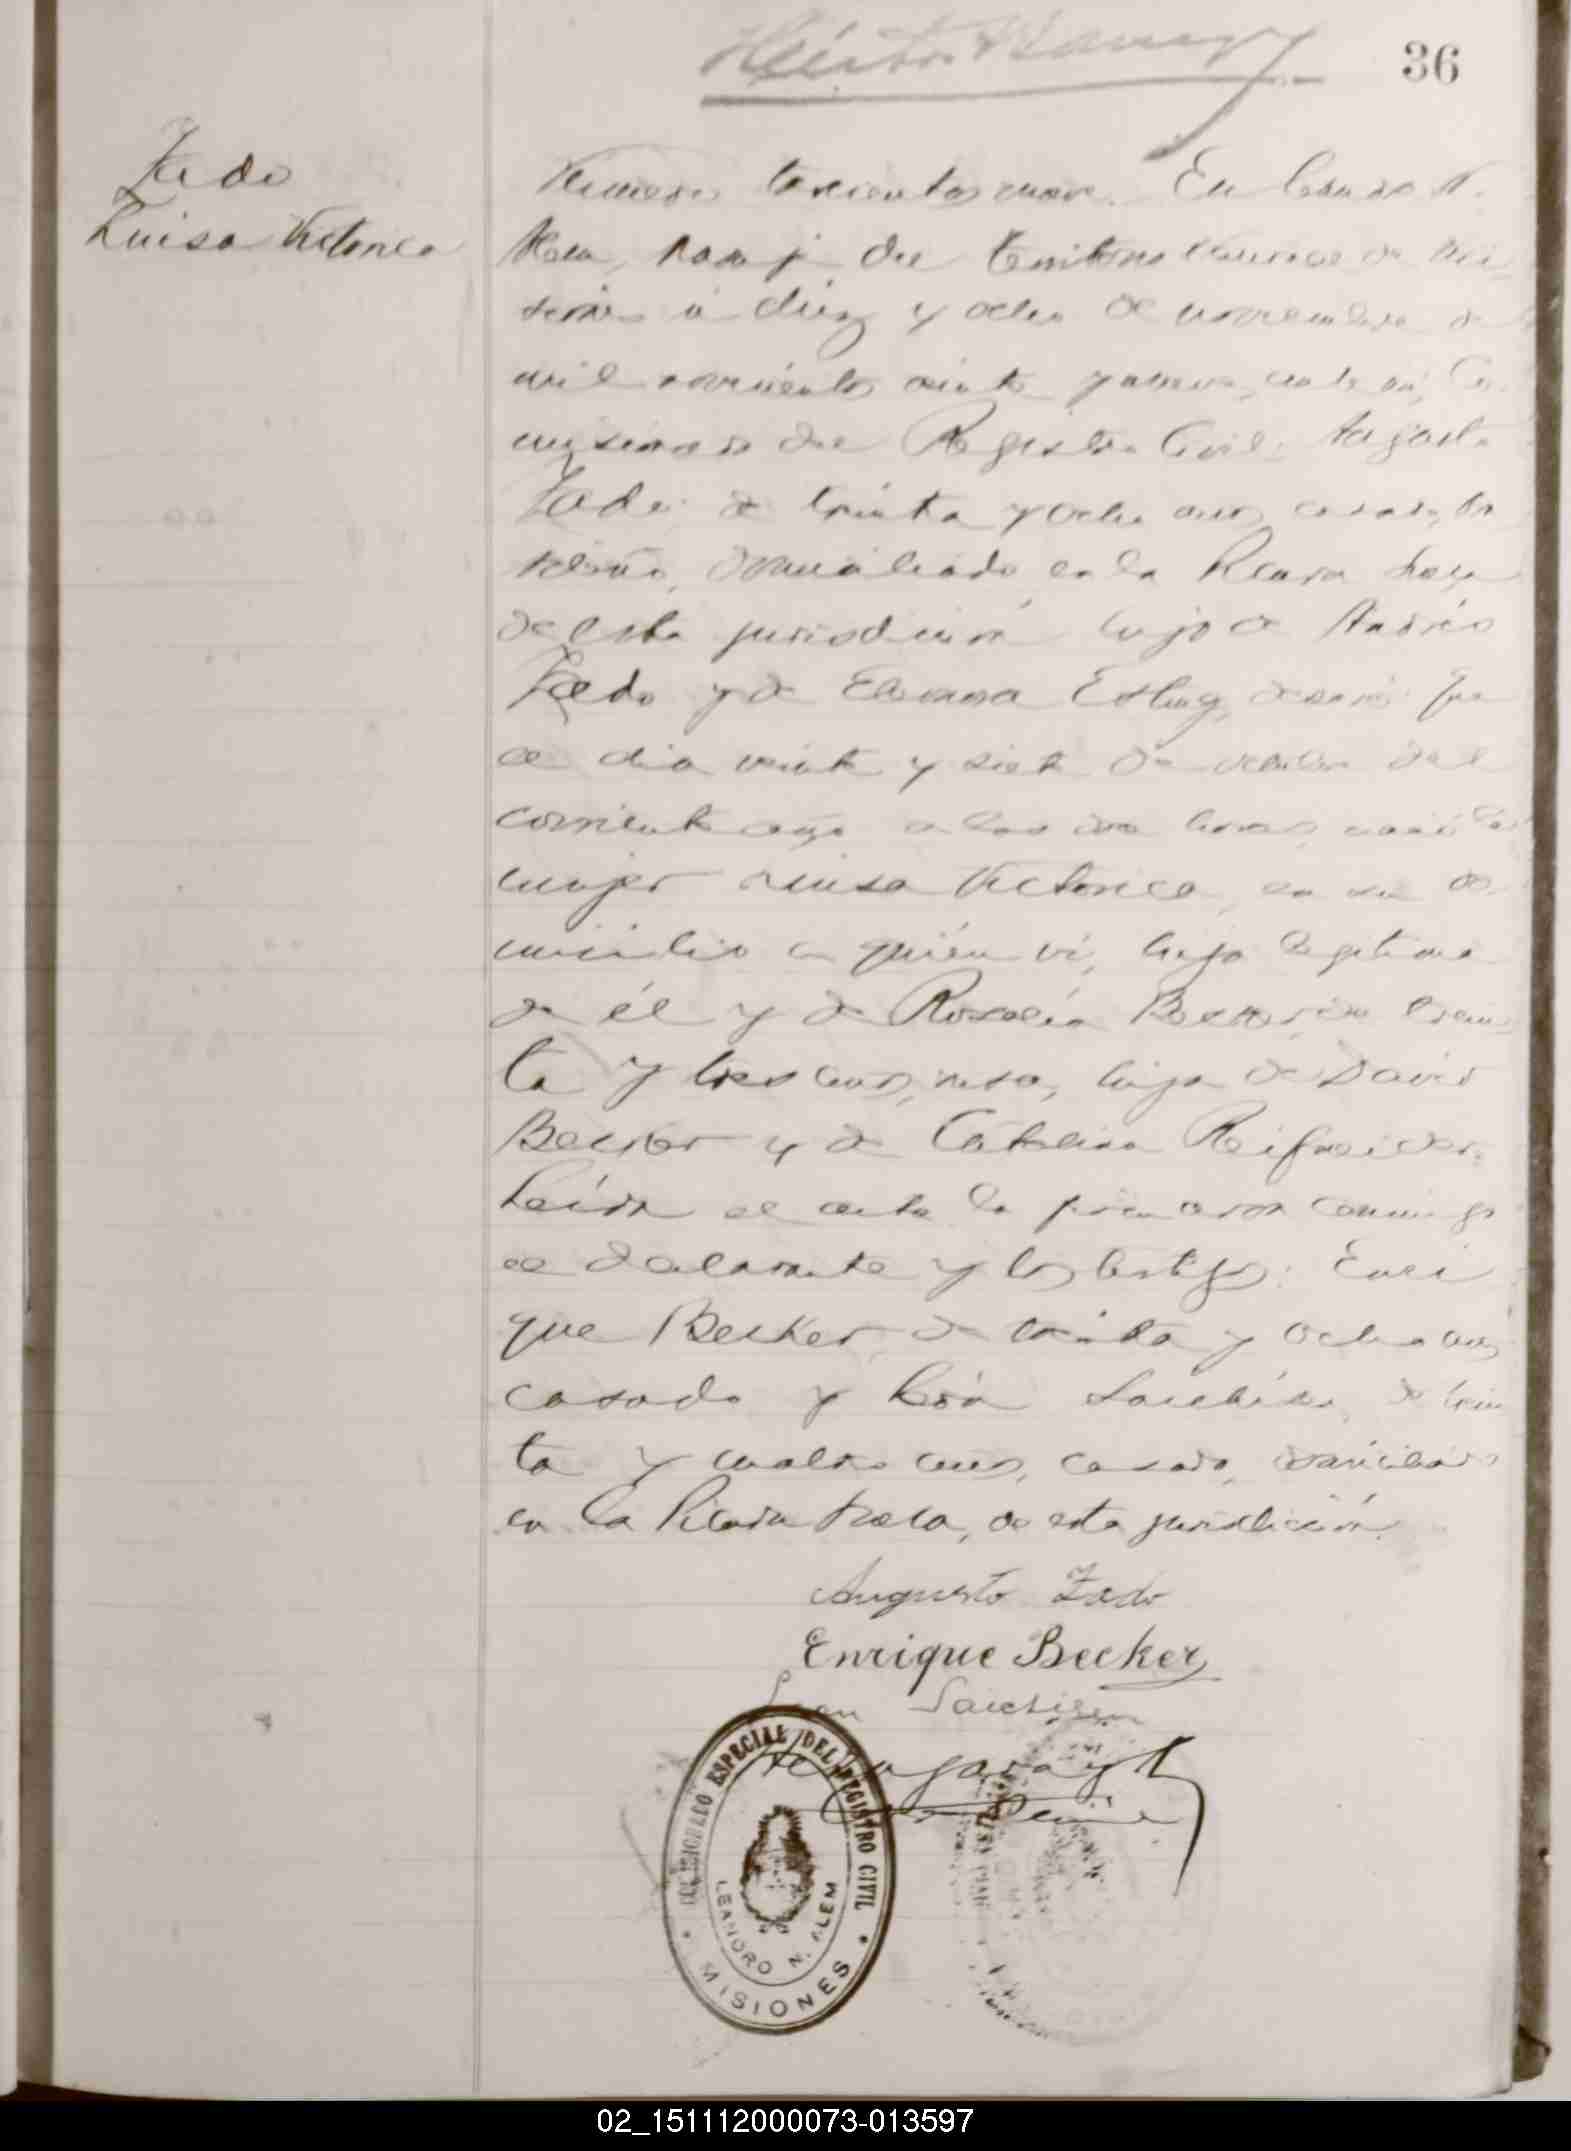 36
Zado
Luisa Victorica
Numero trescientos nueve. En Cerro A.
Roca, del Territorio Nacional de Mi
siones a diez y ocho de noviembre de
mil novecientos veinte y nueve, ante mí, Co
misionado del Registro Civil: Augusto
Zado de treinta y ocho años, casado,
domiciliado en la Picada Roca
de esta jurisdicción hijo de Andrés
Zado y de Eleonora declaró: Que
el dia veinte y siete de octubre del
corriente año a las dos horas, nació la
mujer Luisa Victorica, en su do
micilio a quién ví, hija legitima
de él y de Rosalía Becker, de trein
ta y tres años, rusa, hija de David
Becker y de Catalina
Leída el acta la firmaron conmigo
el declarante y los testigos: Enri
que Becker, de treinta y ocho años
casado y León de trein
ta y cuatro años, casado, domiciliados
en la Picada Roca, de esta jurisdicción.
Augusto Zado
Enrique Becker
ESPECIAL DEL REGISTRO CIVIL
LEANDRO N. ALEM
MISIONES
02_151112000073-013597